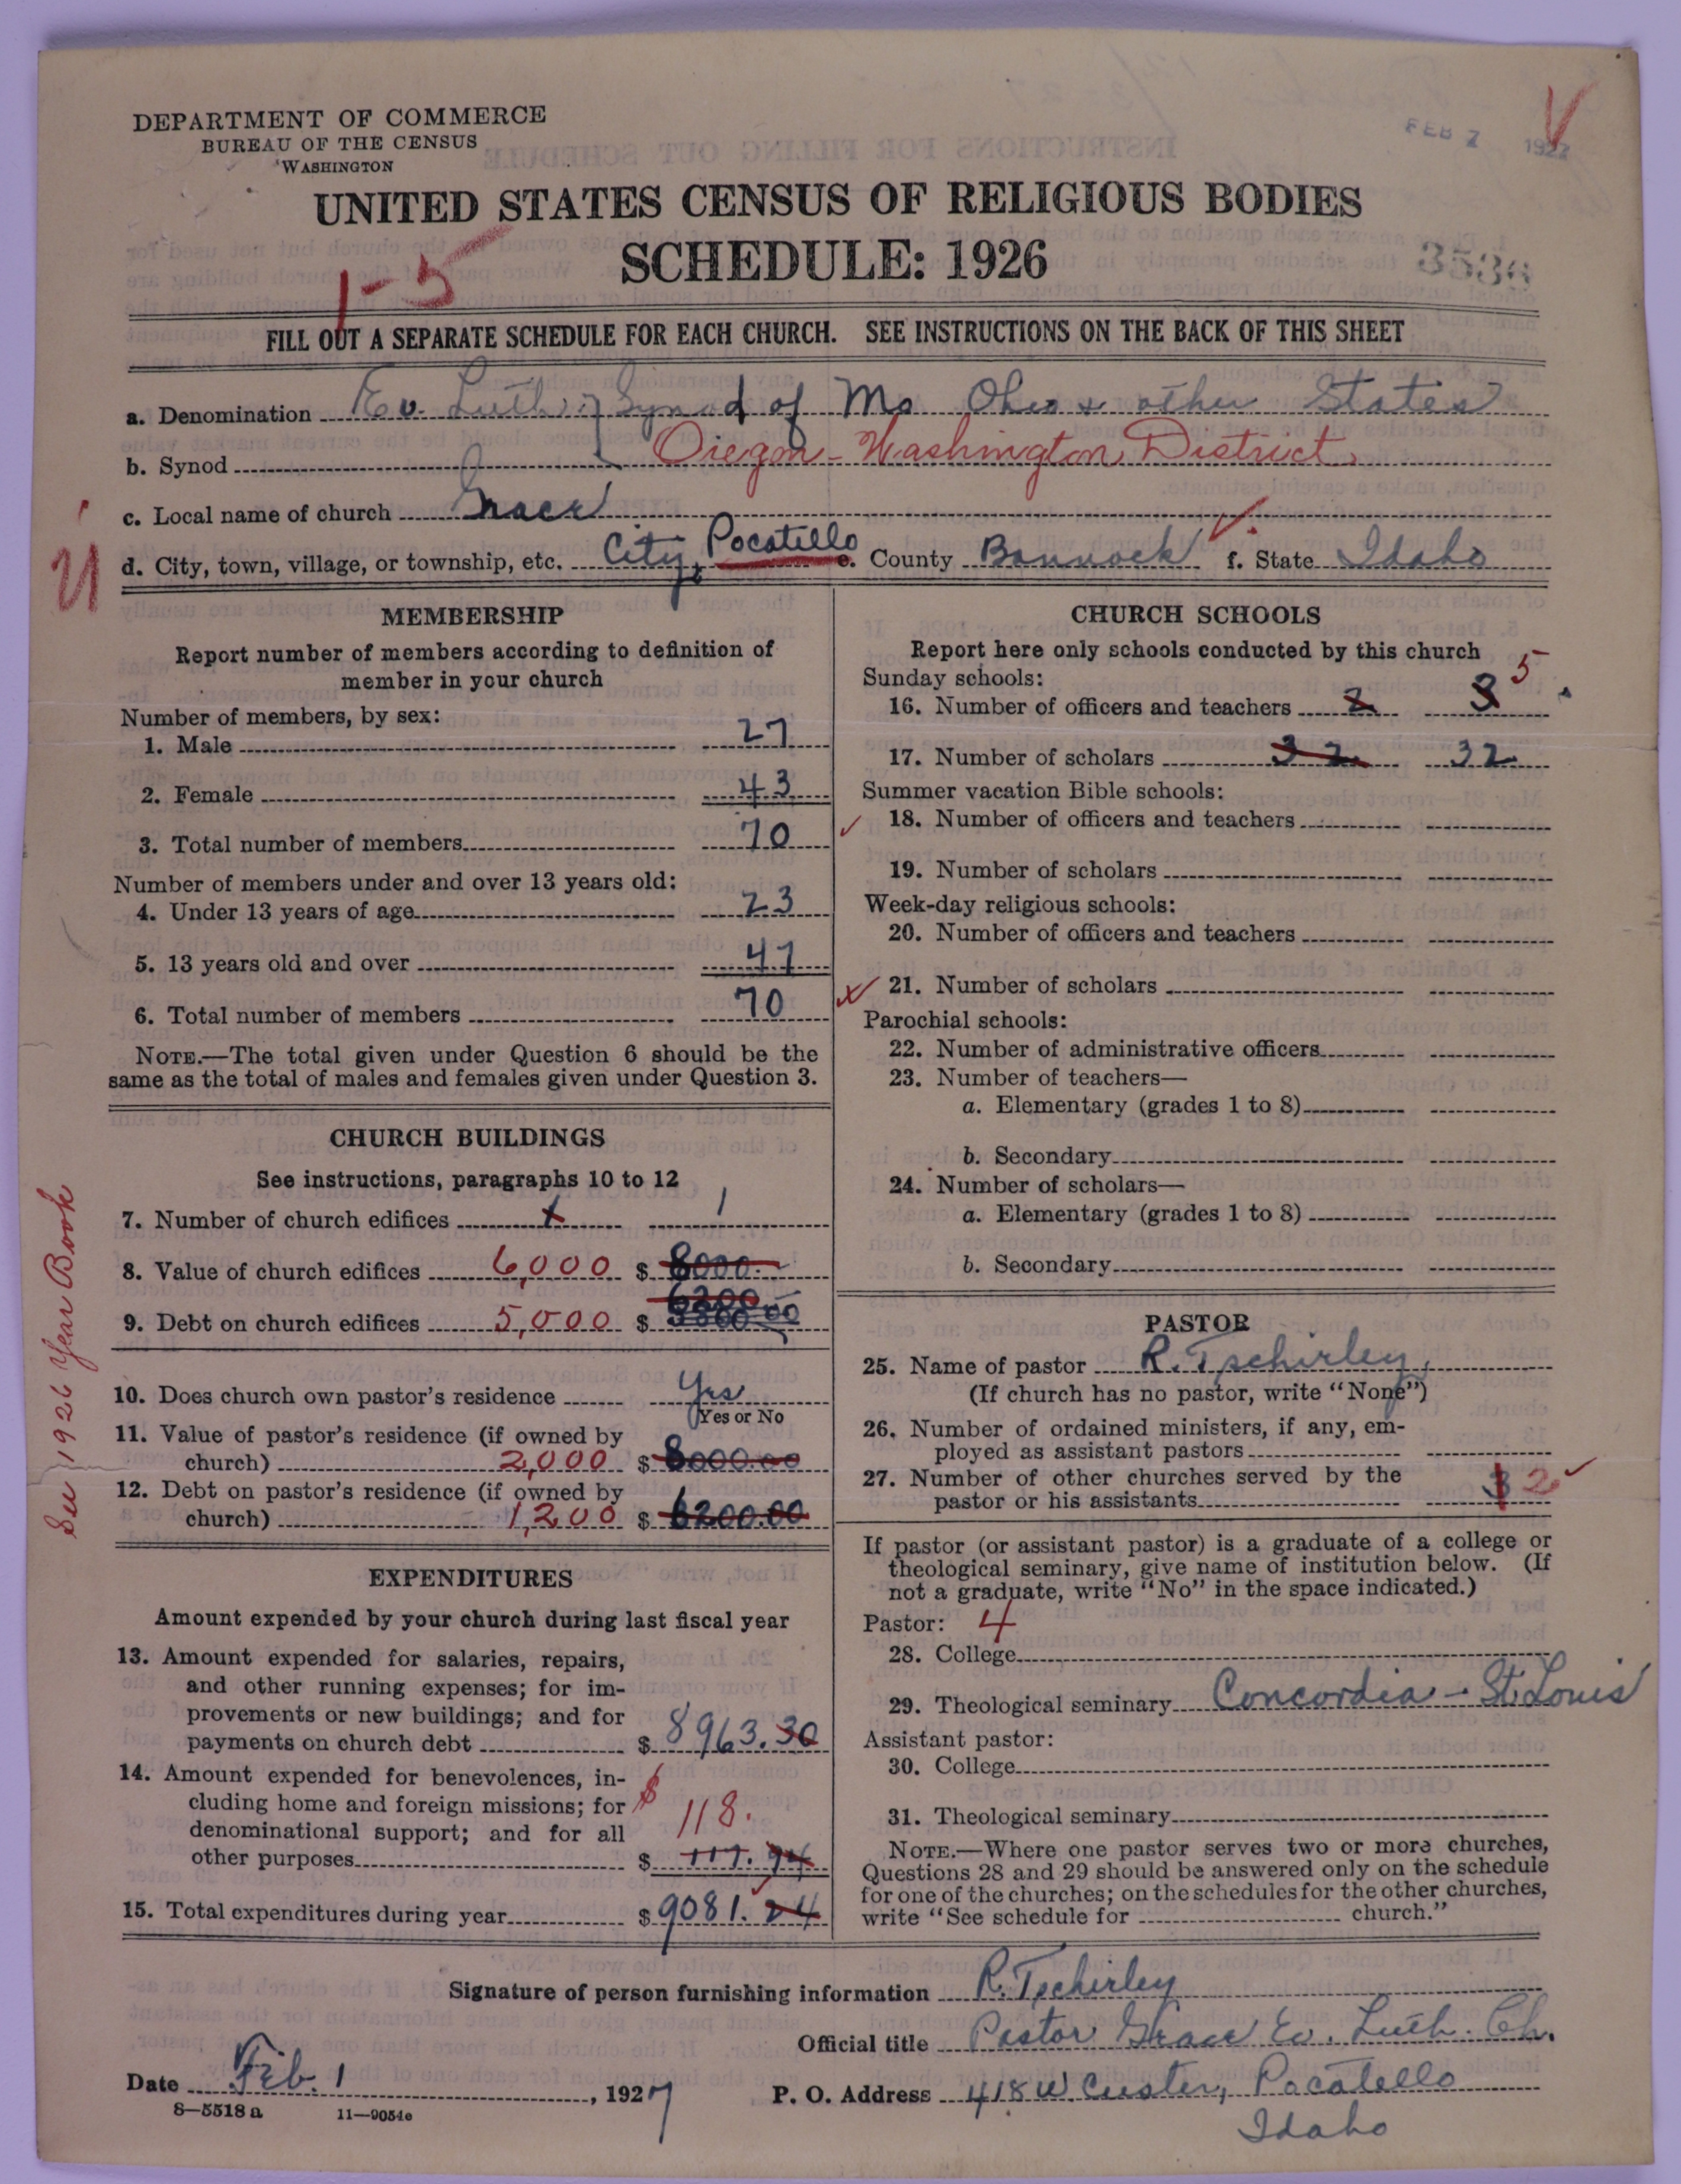 DEPARTMENT OF COMMERCE
BUREAU OF THE CENSUS
WASHINGTON
FEB 2 1927
UNITED STATES CENSUS OF RELIGIOUS BODIES
SCHEDULE: 1926
1-5
FILL OUT A SEPARATE SCHEDULE FOR EACH CHURCH. SEE INSTRUCTIONS ON THE BACK OF THIS SHEET
a. Denomination Ev. Luth. Synod of Mo Ohio & other States
b. Synod Oregon-Washington District
c. Local name of church Grace
d. City, town, village, or township, etc. City, Pocatello e. County Bannock f. State Idaho
MEMBERSHIP
Report number of members according to definition of
member in your church
Number of members, by sex:
1. Male 27
2. Female 43
3. Total number of members 70
Number of members under and over 13 years old:
4. Under 13 years of age 23
5. 13 years old and over 47
6. Total number of members 70
NOTE.—The total given under Question 6 should be the
same as the total of males and females given under Question 3.
CHURCH BUILDINGS
See instructions, paragraphs 10 to 12
7. Number of church edifices 1 1
8. Value of church edifices 6,000 $ 8000.
6200
9. Debt on church edifices 5,000 $
10. Does church own pastor's residence Yes
Yes or No
11. Value of pastor's residence (if owned by
church) 2,000 $ 8000.00
12. Debt on pastor's residence (if owned by
church) 1,200 $ 6200.00
See 1926 Year Book
EXPENDITURES
Amount expended by your church during last fiscal year
13. Amount expended for salaries, repairs,
and other running expenses; for im-
provements or new buildings; and for
payments on church debt $ 8963.30
14. Amount expended for benevolences, in-
cluding home and foreign missions; for $
denominational support; and for all 118.
other purposes $ 117.94
15. Total expenditures during year $ 9081.24
CHURCH SCHOOLS
Report here only schools conducted by this church
Sunday schools: 5
16. Number of officers and teachers 2 3
17. Number of scholars 32 32
Summer vacation Bible schools:
18. Number of officers and teachers
19. Number of scholars
Week-day religious schools:
20. Number of officers and teachers
21. Number of scholars
Parochial schools:
22. Number of administrative officers
23. Number of teachers—
a. Elementary (grades 1 to 8)
b. Secondary
24. Number of scholars—
a. Elementary (grades 1 to 8)
b. Secondary
PASTOR
25. Name of pastor R. Tschirley,
(If church has no pastor, write "None")
26. Number of ordained ministers, if any, em-
ployed as assistant pastors
27. Number of other churches served by the
pastor or his assistants 3 2
If pastor (or assistant pastor) is a graduate of a college or
theological seminary, give name of institution below. (If
not a graduate, write "No" in the space indicated.)
Pastor: 4
28. College
29. Theological seminary Concordia - St. Louis
Assistant pastor:
30. College
31. Theological seminary
NOTE.—Where one pastor serves two or more churches,
Questions 28 and 29 should be answered only on the schedule
for one of the churches; on the schedules for the other churches,
write "See schedule for church."
Signature of person furnishing information R. Tschirley
Official title Pastor Grace Ev. Luth. Ch.
Date Feb. 1, 1927 P. O. Address 418 W. Custer, Pocatello
8-5518 a 11-9054e Idaho